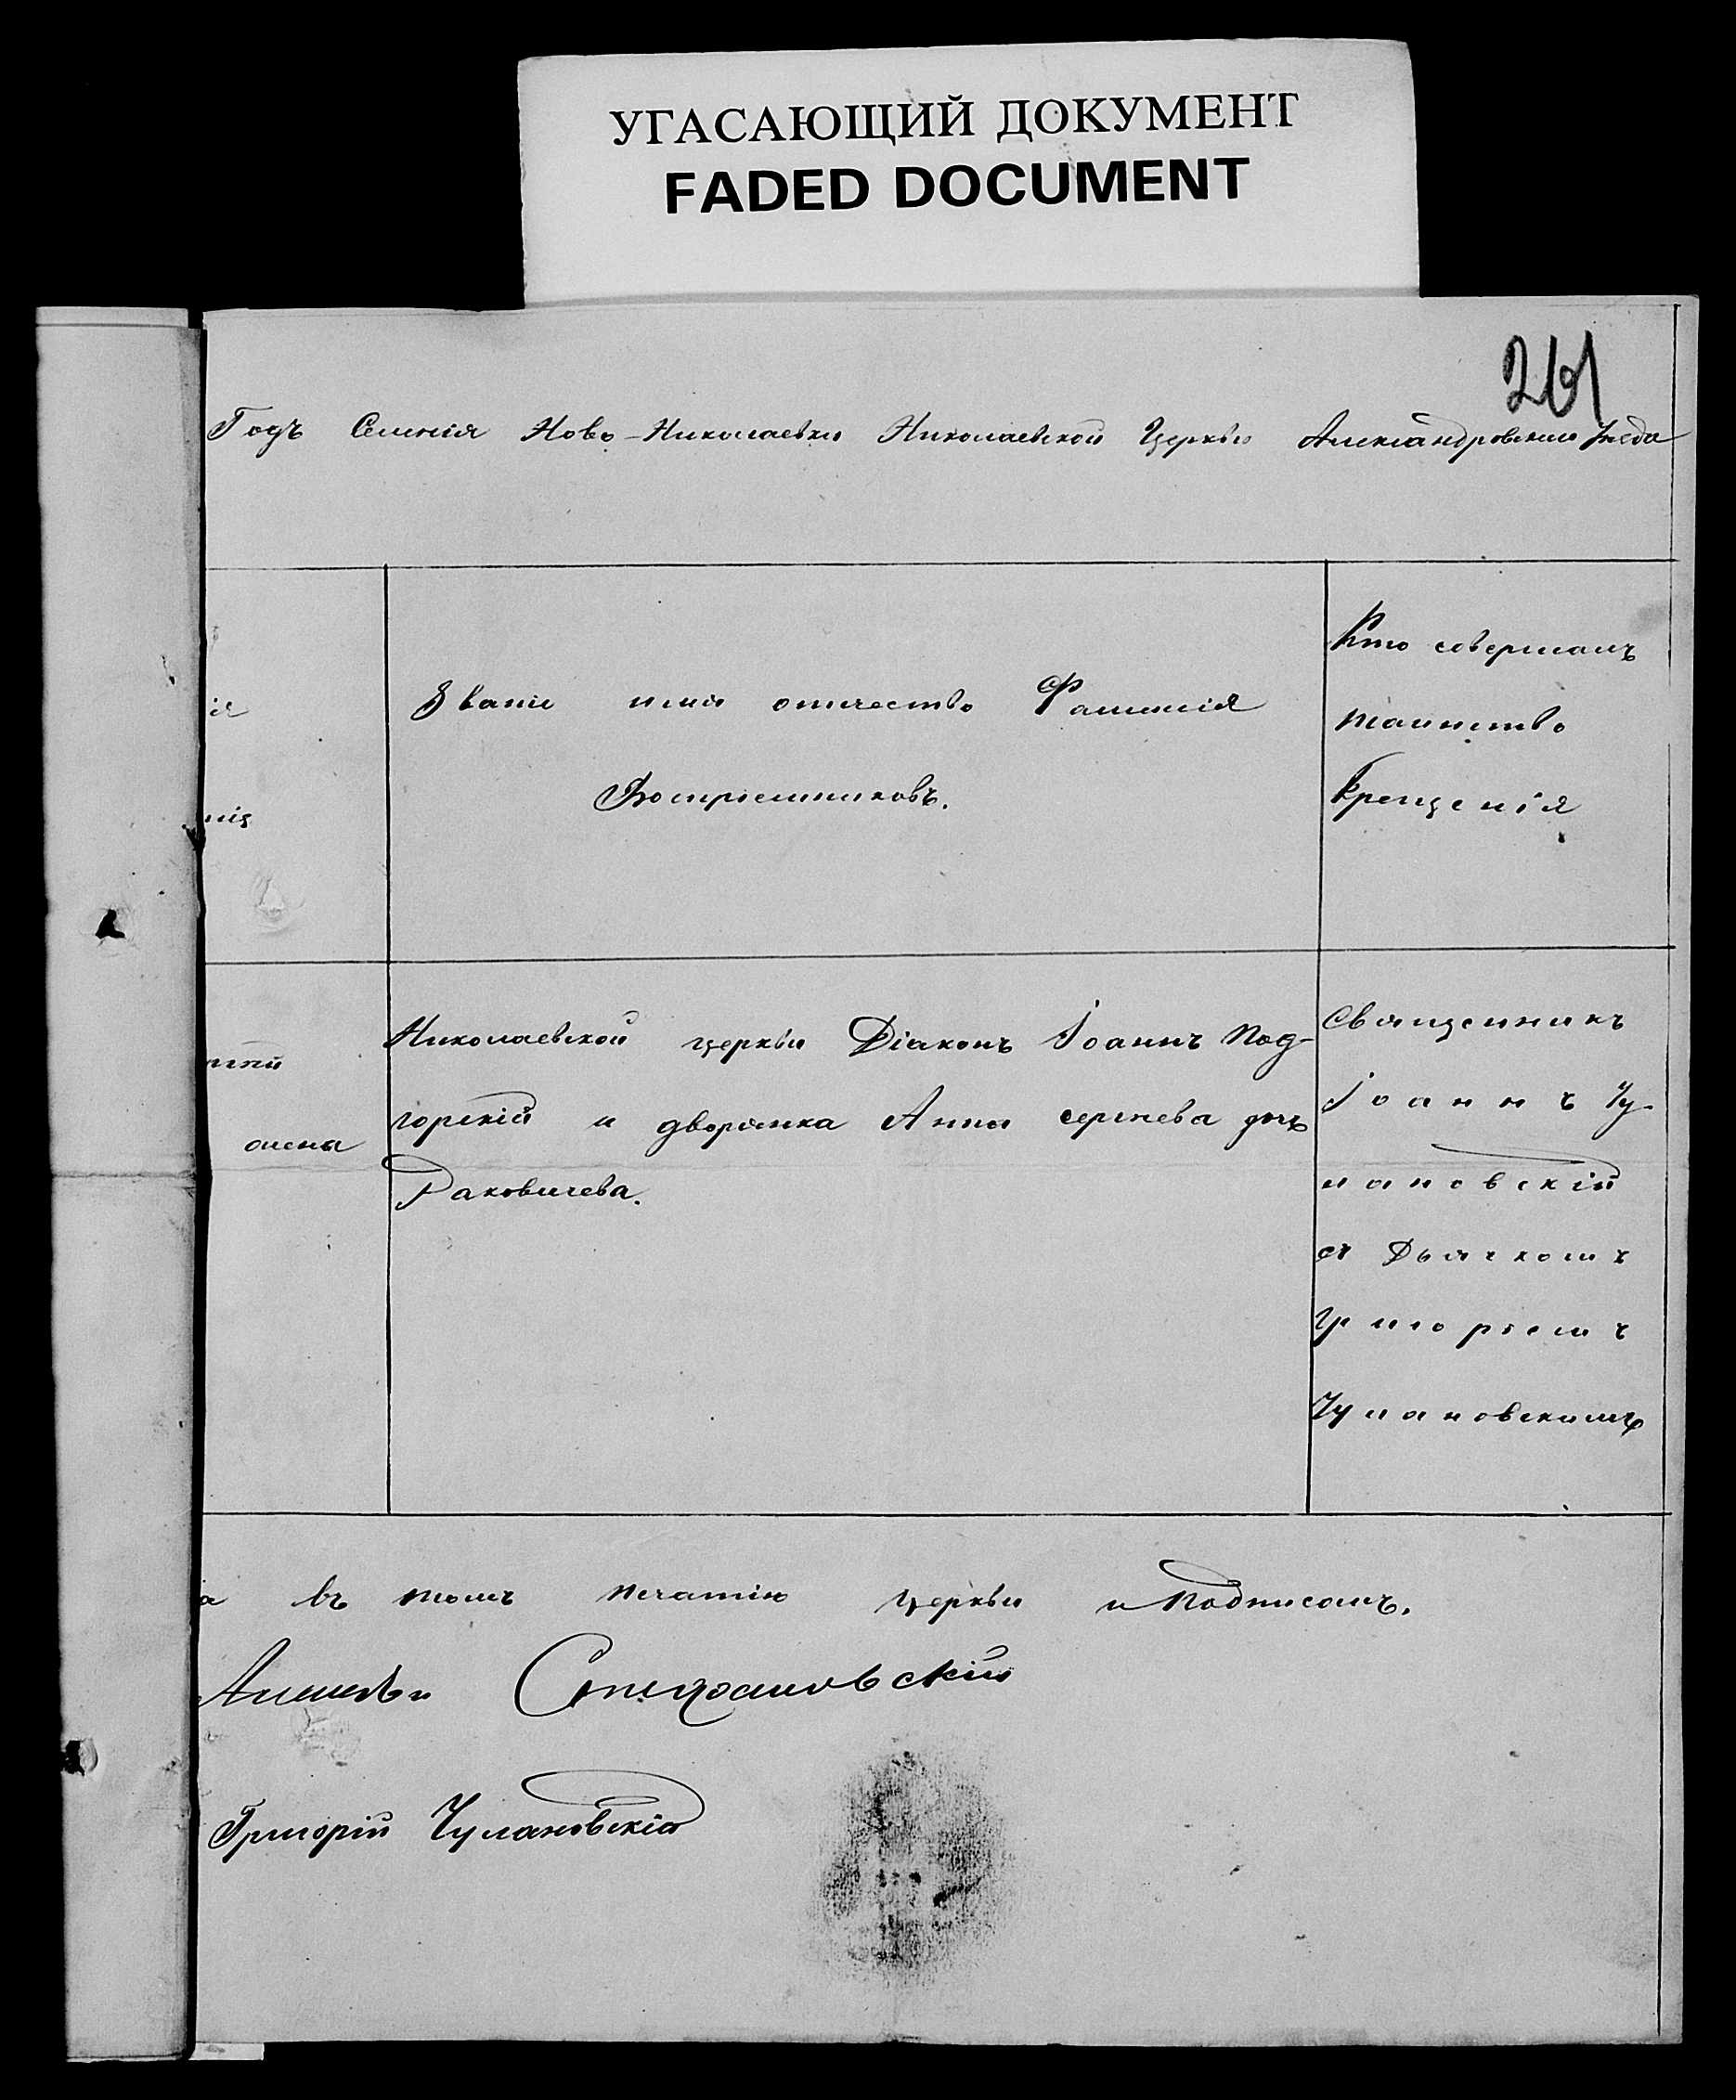 УГАСАЮЩИЙ ДОКУМЕНТ
FADED DOCUMENT
261
Годъ Селенія Ново-Николаевки Николаевской Церкви Александровского Уезда
ія
нія
Званіе имя отчество Фамилія
Воспріемниковъ.
Кто совершалъ
таинство
Крещенія
Николаевской церкви Діаконъ Іоаннъ Под-
горскій и дворянка Анна сергѣева дочь
Раковичева.
Священникъ
Іоаннъ Чу-
лановскій
съ Дьячкомъ
Григоріемъ
Чулановскимъ
а въ томъ печатію Церкви и подписомъ.
Алексѣй Стефановскій
Григорій Чулановскій